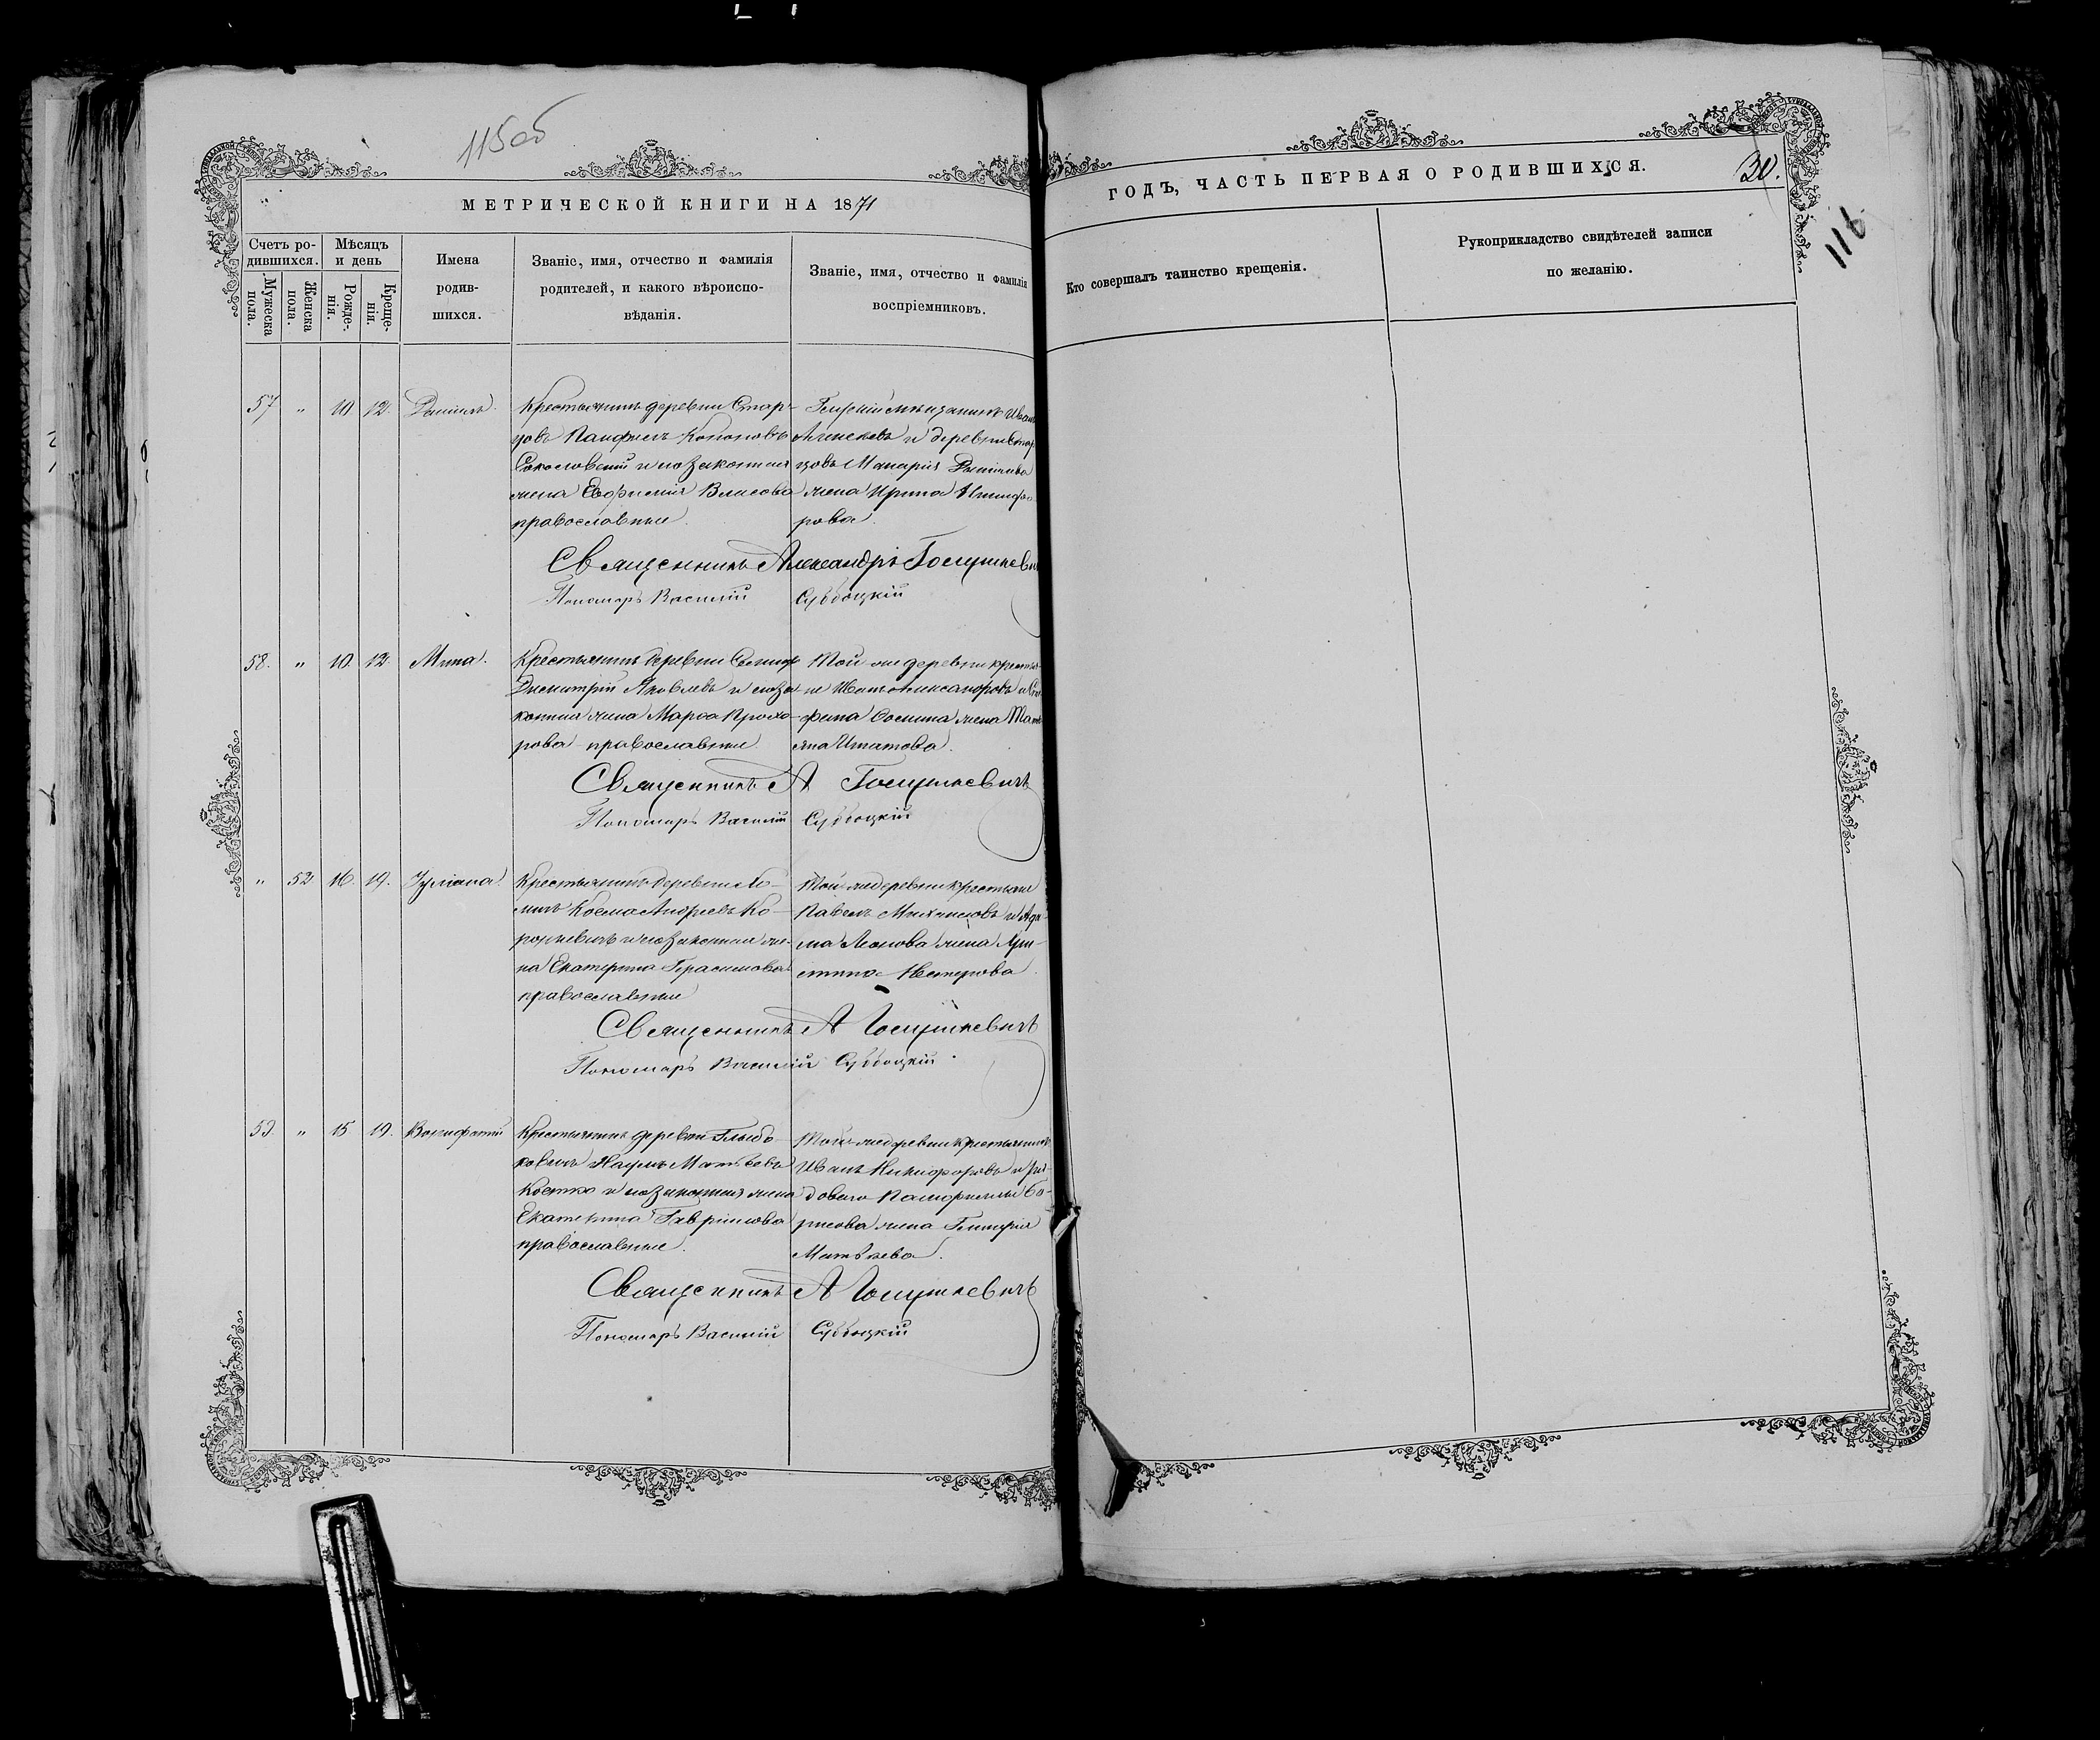 115об
МЕТРИЧЕСКОЙ КНИГИ НА 1871
ГОДЪ, ЧАСТЬ ПЕРВАЯ О РОДИВШИХСЯ.
30.
116
Счетъ ро-
дившихся.
Мужеска
пола.
Женска
пола.
Мѣсяцъ
и день
Рожде-
нія.
Креще-
нія.
Имена
родив-
шихся.
Званіе, имя, отчество и фамилія
родителей, и какого вѣроиспо-
вѣданія.
Званіе, имя, отчество и фамилія
воспріемниковъ.
Кто совершалъ таинство крещенія.
Рукоприкладство свидѣтелей записи
по желанію.
57 " 10. 12. Даніилъ.
Крестьянинъ деревни Стар-
цовъ Панфилъ Кононовъ
и законная
жена Евфимія Власова
православные.
мѣщанинъ Иванъ
Алексѣевъ и деревни Стар
цовъ Макарія Даніилова
жена Ирина Никифо-
рова.
Священникъ Александръ Голушкевичъ
Пономарь Василій Субботцкій
58. " 10. 12. Мина.
Крестьянинъ деревни
Димитрій Яковлевъ и зако
конная жена Марѳа Прохо-
рова православные.
Той же деревни крестья-
не Иванъ Александровъ и
жена Татья
на Игнатова.
Священникъ А Голушкевичъ
Пономарь Василій Субботцкій
" 52 16. 19. Іуліана.
Крестьянинъ деревни
Косма Андреевъ Ко-
и законная же-
на Екатерина Герасимова
православные
Той же деревни крестьяне
Павелъ Михаиловъ и Ада-
ма Леонова жена Хри-
стина Нестерова.
Священникъ А Голушкевичъ
Пономарь Василій Субботцкій.
59. " 15 19. Вонифатій
Крестьянинъ деревни Глыбо-
ковичъ Наумъ Матѳеевъ
Костко и законная жена
Екатерина Гавріилова
православные.
Той же деревни крестьянинъ
Иванъ Никифоровъ и ря-
доваго Памфила Бо-
рисова жена Гликерія
Матѳеева.
Священникъ А Голушкевичъ
Пономарь Василій Субботцкій